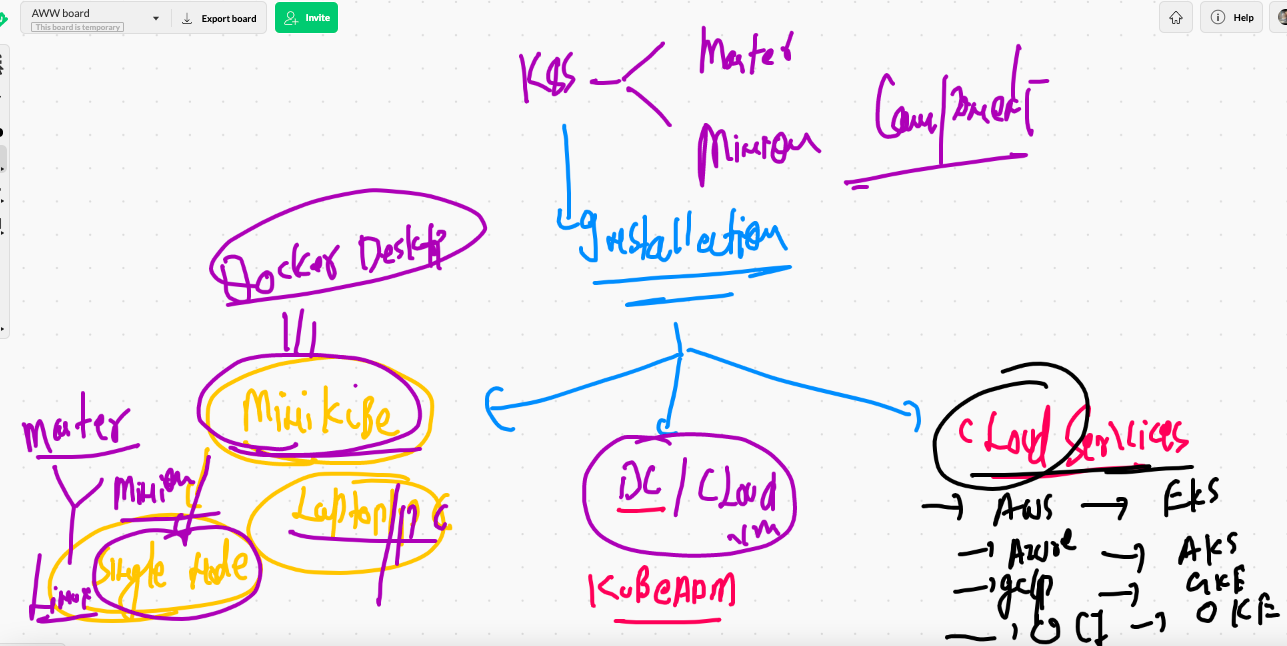 AWW board
This board is temporary
Export board
Invite
Help
K8S
Master
Minion
Component
Installation
Docker Desktop
MiniKube
Master
Minion
Laptop/PC
Single Node
Linux
DC / CLoud
vm
KuBeADM
CLoud Services
AWS EKS
Azure AKS
gcp GKE
OCI OKE